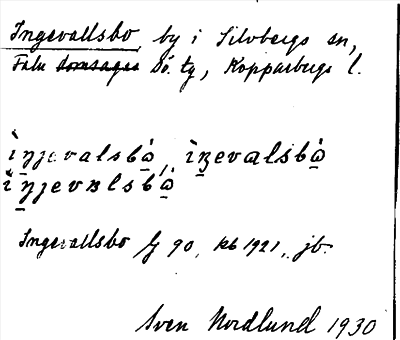 Ingevallsbo, by i Silvbergs sn,
Falu domsagas Sö. tg, Kopparbergs l.
ìŋjevalsbό̠, ìŋevalsbό̠
ìŋjevʌlsbό̠
Ingevallsbo Gg 90, kb 1921, jb.
Sven Nordlund 1930